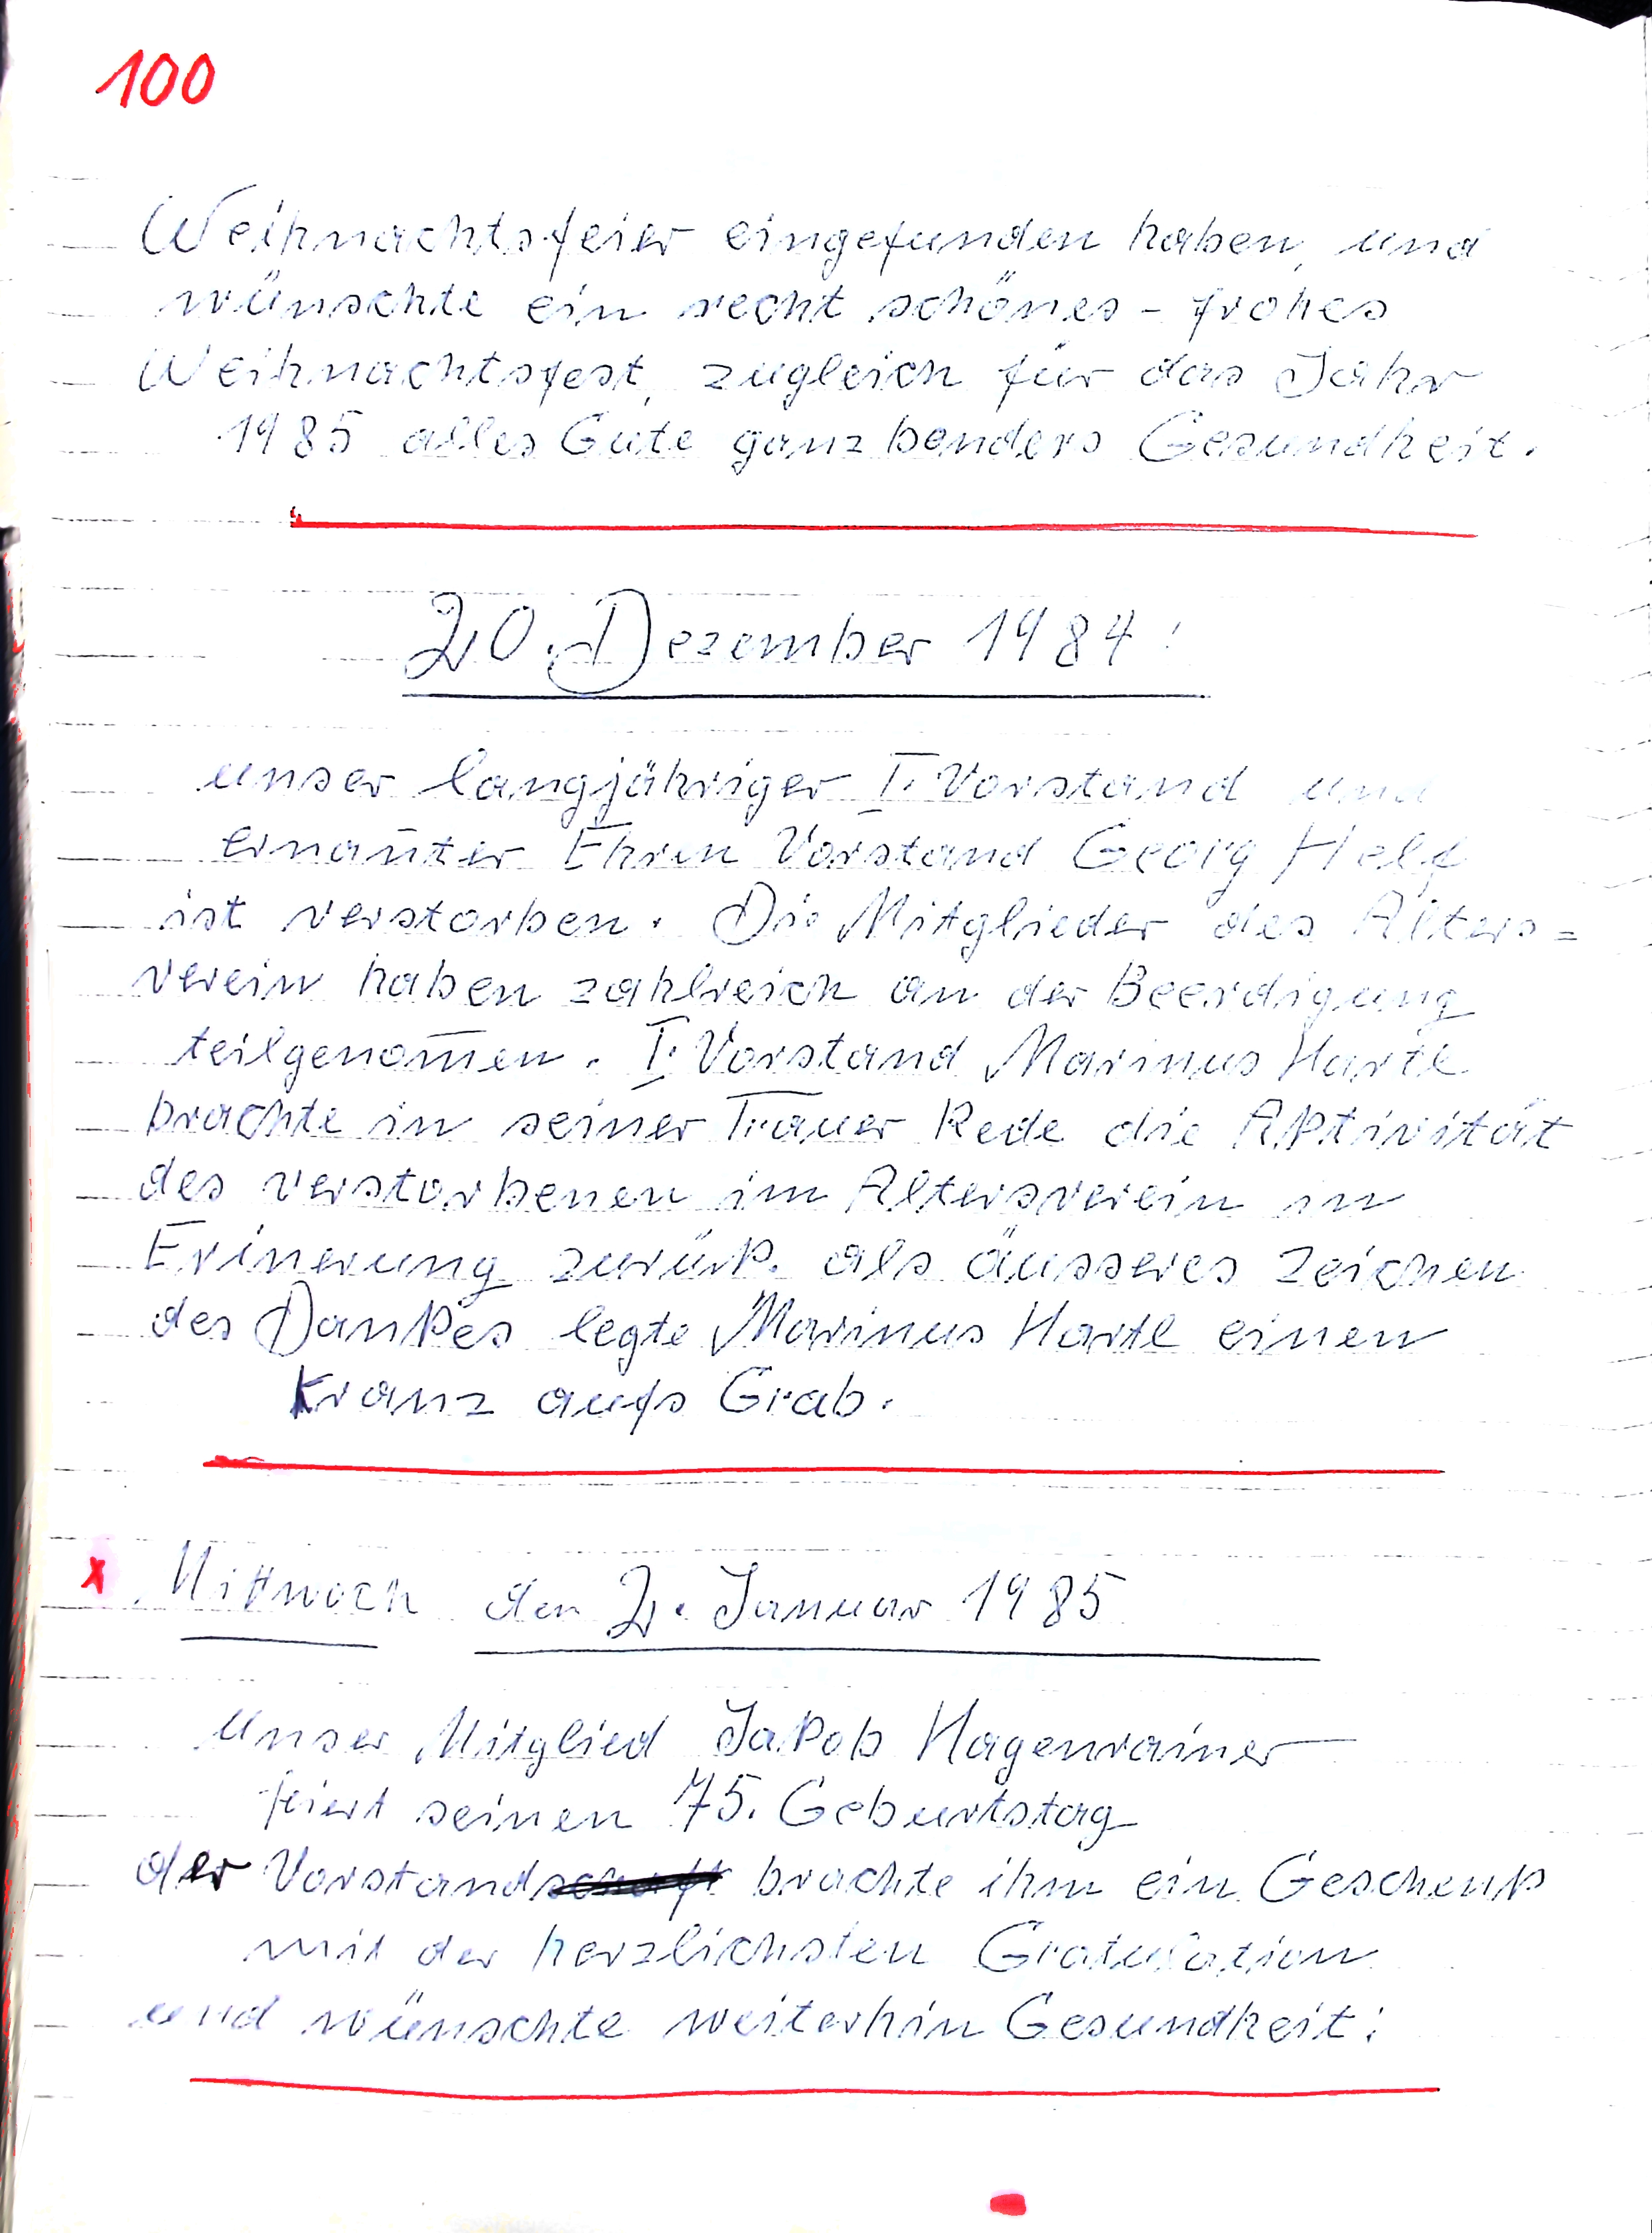 100
Weihnachtsfeier eingefunden haben, und
wünschte ein recht schönes - frohes
Weihnachtsfest, zugleich für das Jahr
1985 alles Gute ganz benders Gesundheit.
20. Dezember 1984!
unser langjähriger I. Vorstand und
ernan̄ter Ehren Vorstand Georg Helf
ist verstorben. Die Mitglieder des Alters=
verein haben zahlreich an der Beerdigung
teilgenom̄en. I. Vorstand Marinus Hartl
brachte in seiner Trauer Rede die Aktivität
des verstorbenen im Altersverein in
Erinerung zurück. als äusseres Zeichen
des Dankes legte Marinus Hartl einen
Kranz aufs Grab.
x Mittwoch den 2. Januar 1985
unser Mitglied Jakob Hagenrainer
feiert seinen 75. Geburtstag
der Vorstandschaft brachte ihm ein Geschenk
mit der herzlichsten Gratulation
und wünschte weiterhin Gesundheit!